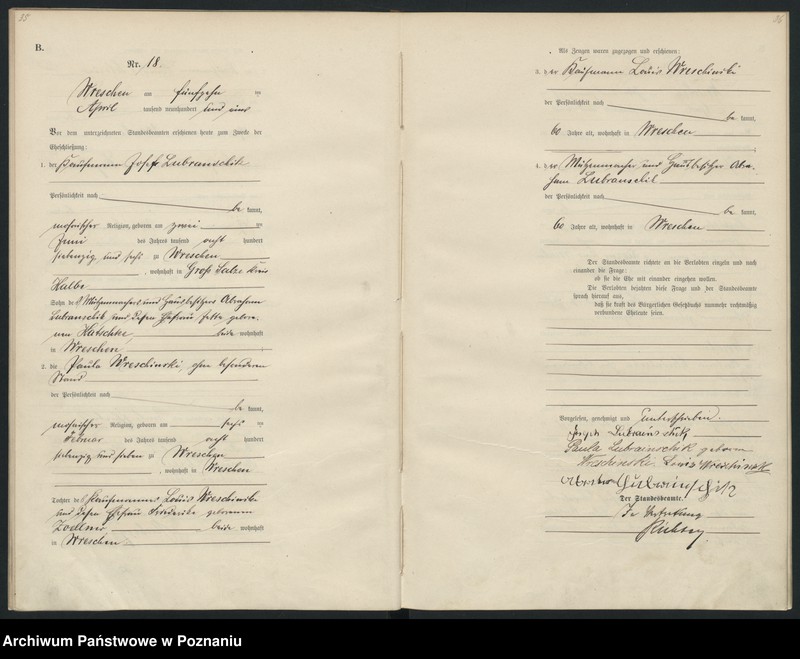 35
B.
Nr. 18.
Wreschen am fünfzehn ten
April tausend neunhundert und eins
Vor dem unterzeichneten Standesbeamten erschienen heute zum Zwecke der
Eheschließung:
1. der Kaufmann Josef Lubranschik
Persönlichkeit nach
be kannt,
mosaischer Religion, geboren am zwei ten
Juni des Jahres tausend acht hundert
siebenzig und sechs zu Wreschen
, wohnhaft in Groß Salze Kreis
Kalbe
Sohn des Mützenmachers und Hausbesitzers Abraham
Lubranschik und dessen Ehefrau gebore-
nen beide wohnhaft
in Wreschen
2. die Paula Wreschinski, ohne besonderen
Stand
der Persönlichkeit nach
be kannt,
mosaischer Religion, geboren am sechs ten
Februar des Jahres tausend acht hundert
siebenzig und sieben zu Wreschen
, wohnhaft in Wreschen
Tochter des Kaufmanns Louis Wreschinski
und dessen Ehefrau Friederike geborenen
beide wohnhaft
in Wreschen
36
Als Zeugen waren zugezogen und erschienen:
3. der Kaufmann Louis Wreschinski
der Persönlichkeit nach
be kannt,
60 Jahre alt, wohnhaft in Wreschen
4. der Mützenmacher und Hausbesitzer Abra-
ham Lubranschik
der Persönlichkeit nach
be kannt,
60 Jahre alt, wohnhaft in Wreschen
Der Standesbeamte richtete an die Verlobten einzeln und nach
einander die Frage:
ob sie die Ehe mit einander eingehen wollen.
Die Verlobten bejahten diese Frage und der Standesbeamte
sprach hierauf aus,
daß sie kraft des Bürgerlichen Gesetzbuchs nunmehr rechtmäßig
verbundene Eheleute seien.
Vorgelesen, genehmigt und unterschrieben.
Joseph Lubranschik
Paula Lubranschik geborene
Wreschinski. Louis Wreschinski
Abraham Lubranschik
Der Standesbeamte.
In Vertretung
Archiwum Państwowe w Poznaniu